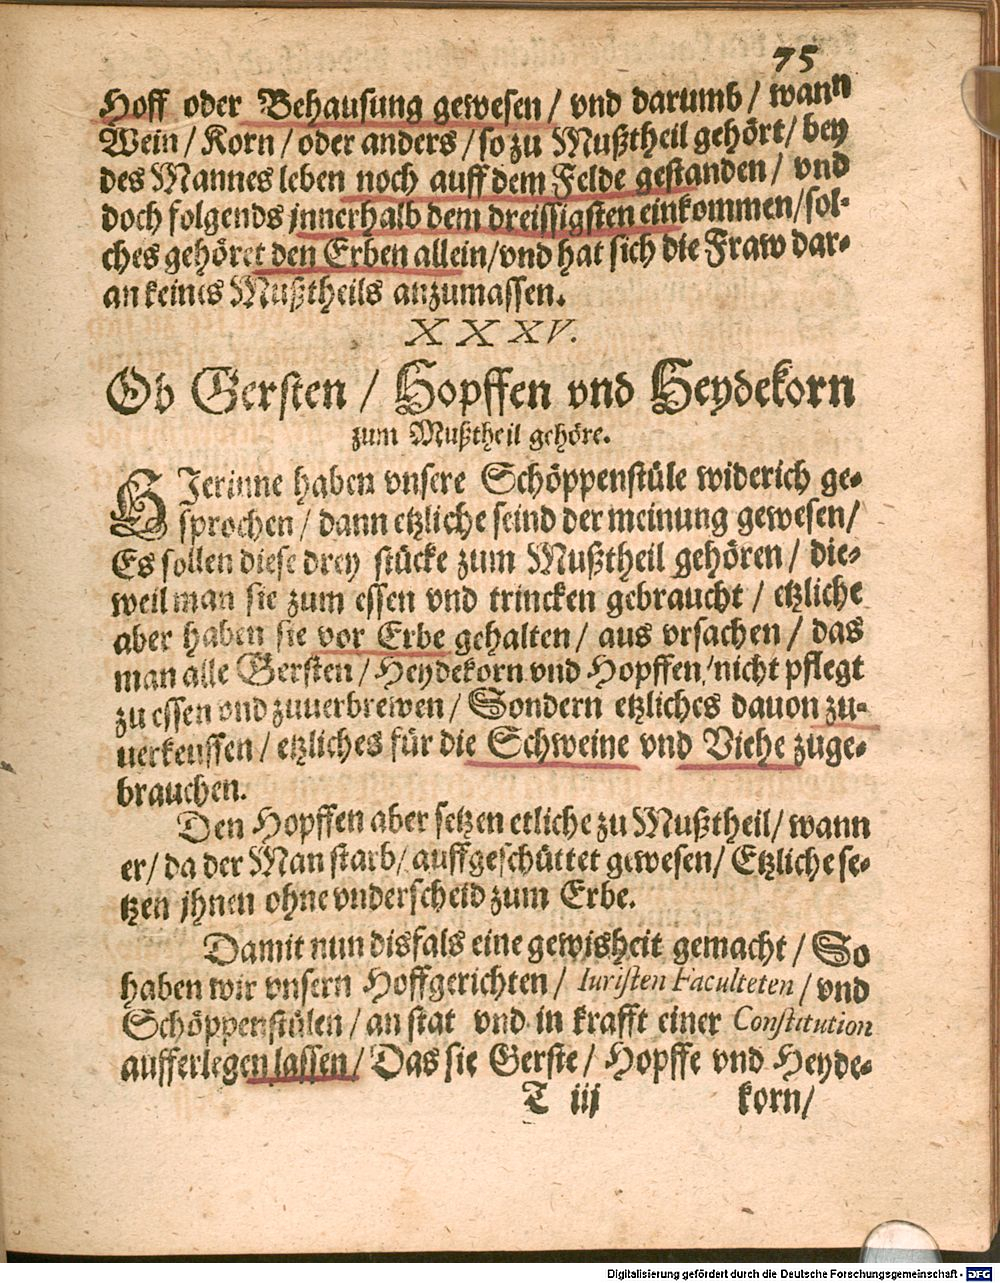 75
Hoff oder Behausung gewesen / vnd darumb / wann
Wein / Korn / oder anders / so zu Mußtheil gehört / bey
des Mannes leben noch auff dem Felde gestanden / vnd
doch folgends jnnerhalb dem dreissigsten einkommen / sol-
ches gehöret den Erben allein / vnd hat sich die Fraw dar-
an keines Mußtheils anzumassen.
XXXV.
Ob Gersten / Hopffen vnd Heydekorn
zum Mußtheil gehöre.
HJerinne haben vnsere Schöppenstüle widerich ge-
sprochen / dann etzliche seind der meinung gewesen /
Es sollen diese drey stücke zum Mußtheil gehören / die-
weil man sie zum essen vnd trincken gebraucht / etzliche
aber haben sie vor Erbe gehalten / aus vrsachen / das
man alle Gersten / Heydekorn vnd Hopffen / nicht pflegt
zu essen vnd zuuerbrewen / Sondern etzliches dauon zu-
uerkeuffen / etzliches für die Schweine vnd Viehe zuge-
brauchen.
Den Hopffen aber setzen etliche zu Mußtheil / wann
er / da der Man starb / auffgeschüttet gewesen / Etzliche se-
tzen jhnen ohne vnderscheid zum Erbe.
Damit nun disfals eine gewisheit gemacht / So
haben wir vnsern Hoffgerichten / Iuristen Faculteten / vnd
Schöppenstülen / an stat vnd in krafft einer Constitution
aufferlegen lassen / Das sie Gerste / Hopffe vnd Heyde-
T iij korn /
Digitalisierung gefördert durch die Deutsche Forschungsgemeinschaft - DFG